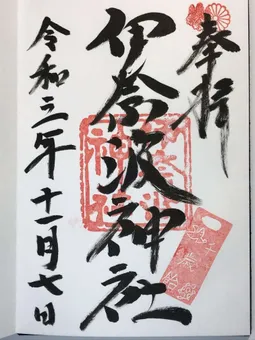 奉拝
伊奈波神社
令和三年十一月七日